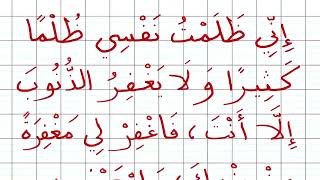 إِنِّي ظَلَمْتُ نَفْسِي ظُلْمًا
كَثِيرًا وَلَا يَغْفِرُ الذُّنُوبَ
إِلَّا أَنْتَ، فَاغْفِرْ لِي مَغْفِرَةً